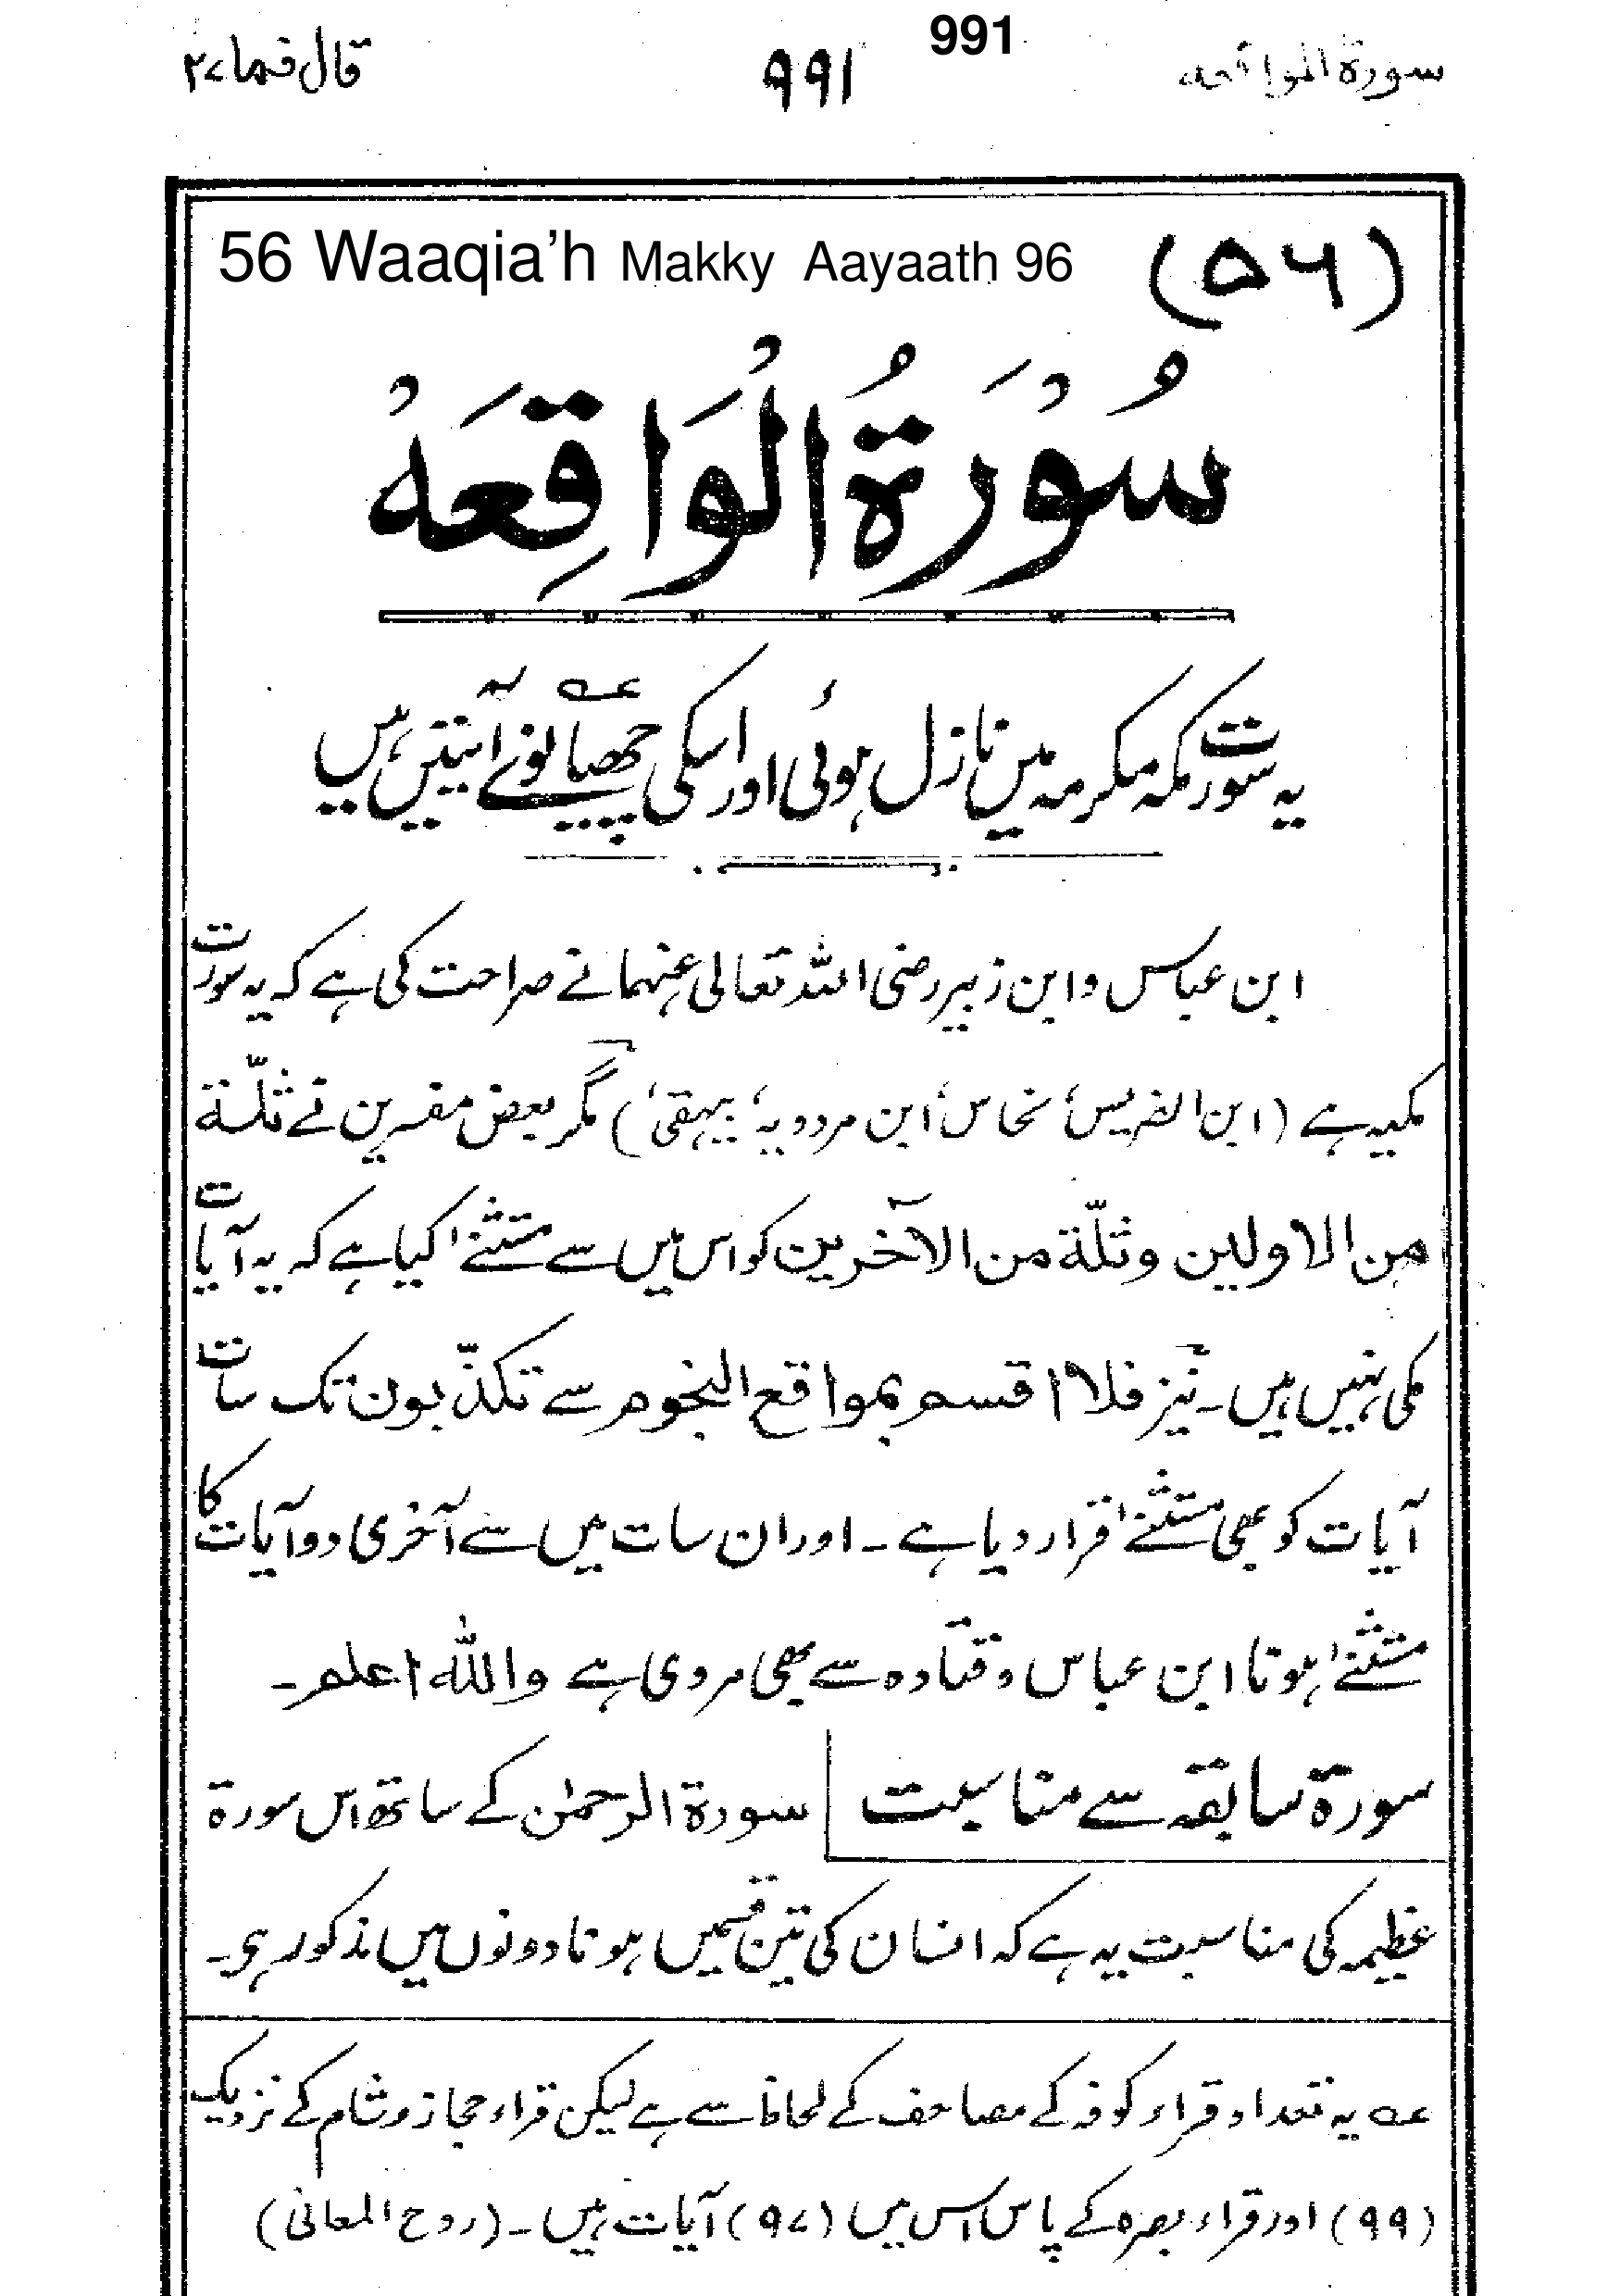 991
سورة الواقعه ۹۹۱ قال فما ۲۷
56 Waaqia’h Makky Aayaath 96 (۵۶)
سُوْرَةُ الْوَاقِعَهْ
یہ سورت مکہ مکرمہ میں نازل ہوئی اور اسکی چھیانوےؔ آیتیں ہیں
ابن عباس و ابن زبیر رضی اللہ تعالی عنہما نے صراحت کی ہے کہ یہ سورت
مکیہ ہے (ابن الضریس، نحاس، ابن مردویہ، بیہقی) مگر بعض مفسرین نے ثلّة
من الاولین وثلّة من الآخرین کو اس میں سے مستثنےٰ کیا ہے کہ یہ آیات
مکی نہیں ہیں۔ نیز فلا اقسم بمواقع النجوم سے تکذّبون تک سات
آیات کو بھی مستثنےٰ قرار دیا ہے ۔ اور ان سات میں سے آخری دو آیات کا
مستثنےٰ ہونا ابن عباس و قتادہ سے بھی مروی ہے واللہ اعلم۔
سورة سابقہ سے مناسبت سورة الرحمٰن کے ساتھ اس سورة
عظیمہ کی مناسبت یہ ہے کہ انسان کی تین قسمیں ہونا دونوں میں مذکور ہے۔
عہ یہ تعداد قراء کوفہ کے مصاحف کے لحاظ سے ہے لیکن قراء حجاز و شام کے نزدیک
(۹۹) اور قراء بصرہ کے پاس اس میں (۹۷) آیات ہیں ۔ (روح المعانی)